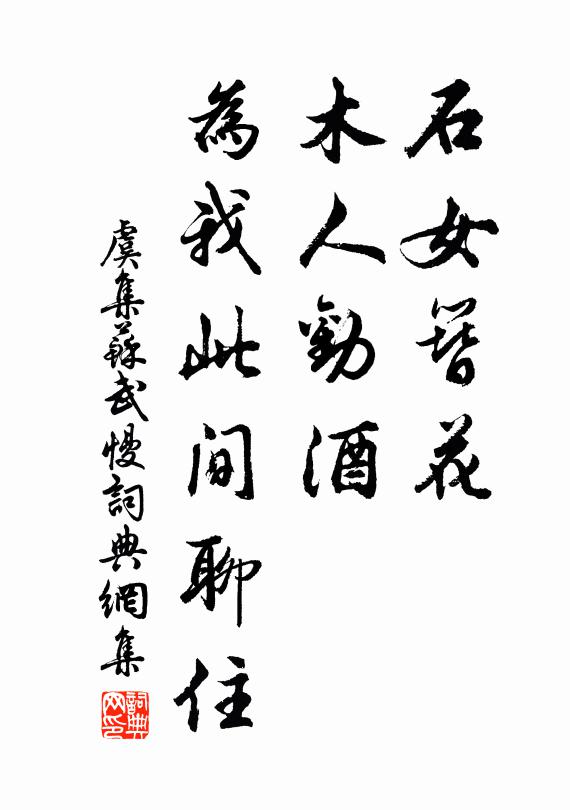 石女簪花
木人勸酒
為我此間聊住
虞集蘇武慢詞典網集
詞典網印